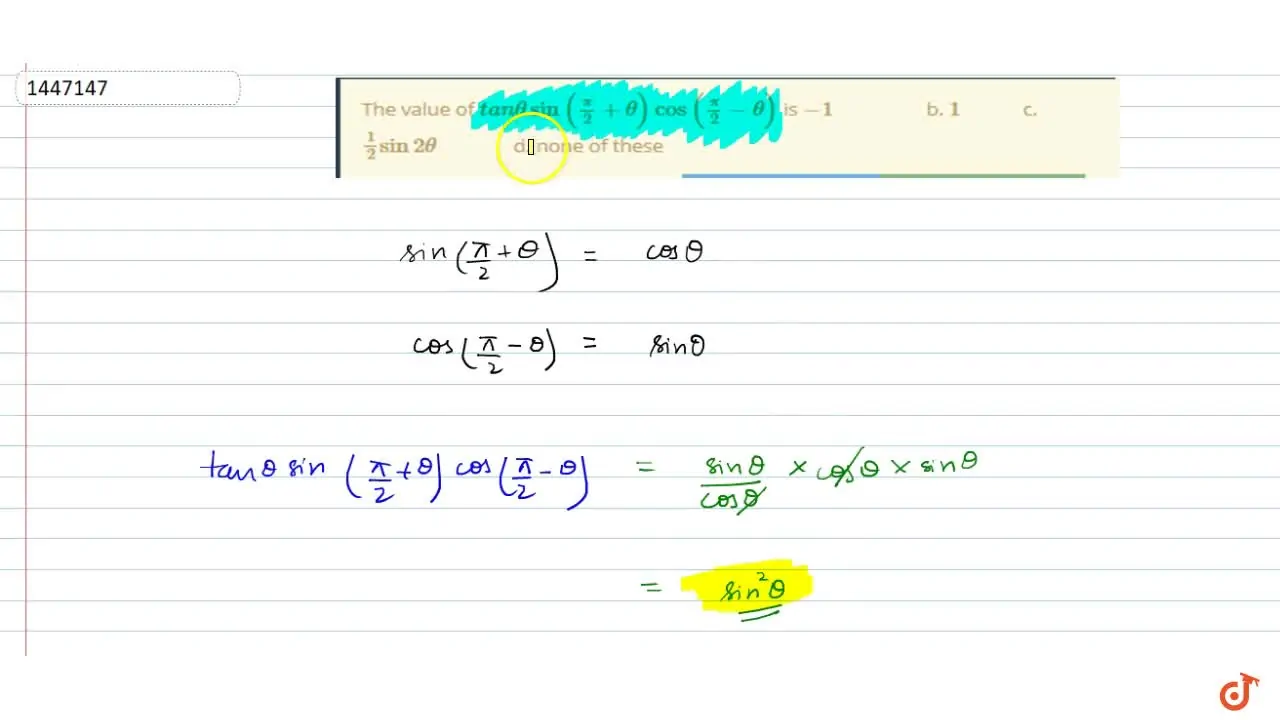 1447147
The value of tanθ sin (π/2 + θ) cos (π/2 − θ) is −1 b. 1 c.
1/2 sin 2θ d. none of these
sin(π/2 + θ) = cosθ
cos(π/2 − θ) = sinθ
tanθ sin (π/2 + θ) cos(π/2 − θ) = sinθ/cosθ × cosθ × sinθ
= sin²θ